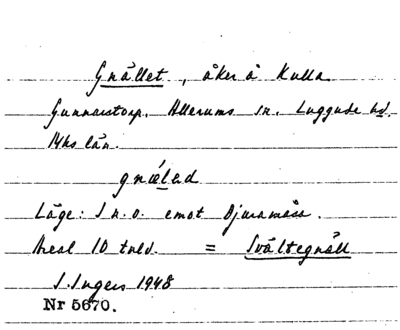 Gnället, åker å Kulla
Gunnarstorp. Allerums sn. Luggude hd.
Mhs län.
gnæləd
Läge: I n.o. emot Djuramåsa.
Areal 10 tnld. = Svältegnäll
I. Ingers 1948
Nr 5670.